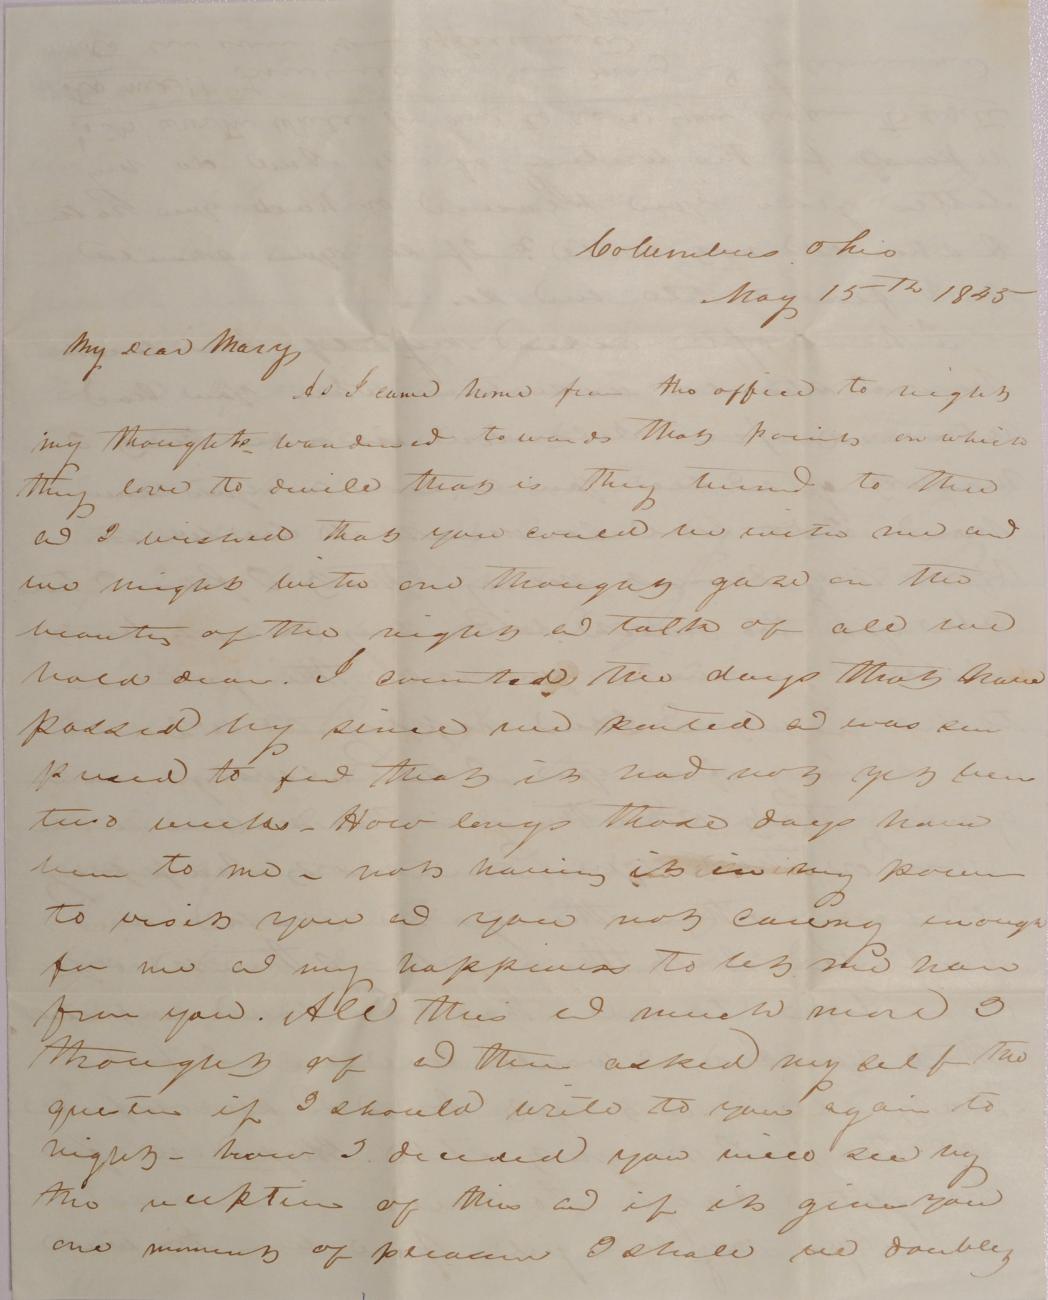 Columbus Ohio
May 15th 1845
My dear Mary
As I came home from the office to night
my thoughts wandered towards that point on which
they love to dwell that is they turned to thee
and I wished that you could be with me and
we might with one thought gaze on the
beauty of the night and talk of all we
hold dear. I counted the days that have
passed by since we parted and was sur
prised to find that it had not yet been
two weeks - How long those days have
been to me - not having it in my power
to visit you and you not caring enough
for me and my happiness to let me hear
from you. All this and much more I
thought of and then asked myself the
question if I should write to you again to
night - how I decided you will see by
the reception of this and if it gives you
one moment of pleasure I shall be doubly